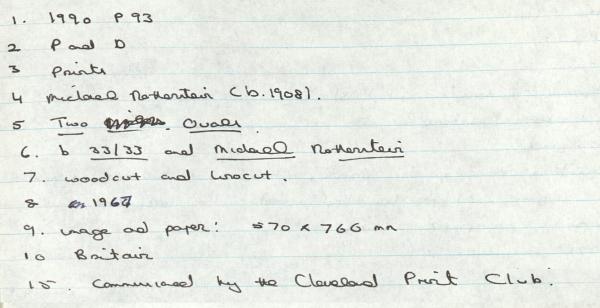 1. 1990 P 93
2 P and D
3 Prints
4 Michael Rothenstein (b.1908).
5 Two Ovals.
6. b 33/33 and Michael Rothenstein
7. woodcut and linocut.
8 1967
9. image and paper: 570 x 766 mm
10 Britain
15. Commissioned by the Cleveland Print Club.